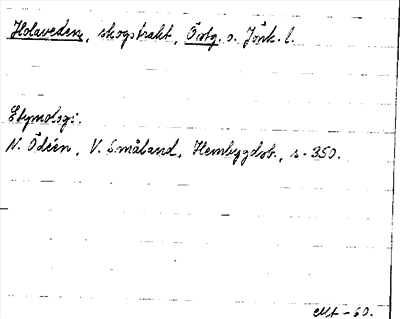 Holaveden, skogstrakt, Östg. o. Jönk. l.
Etymologi.
N. Ödéen, V. Småland, Hembygdsb., s. 350.
-60.